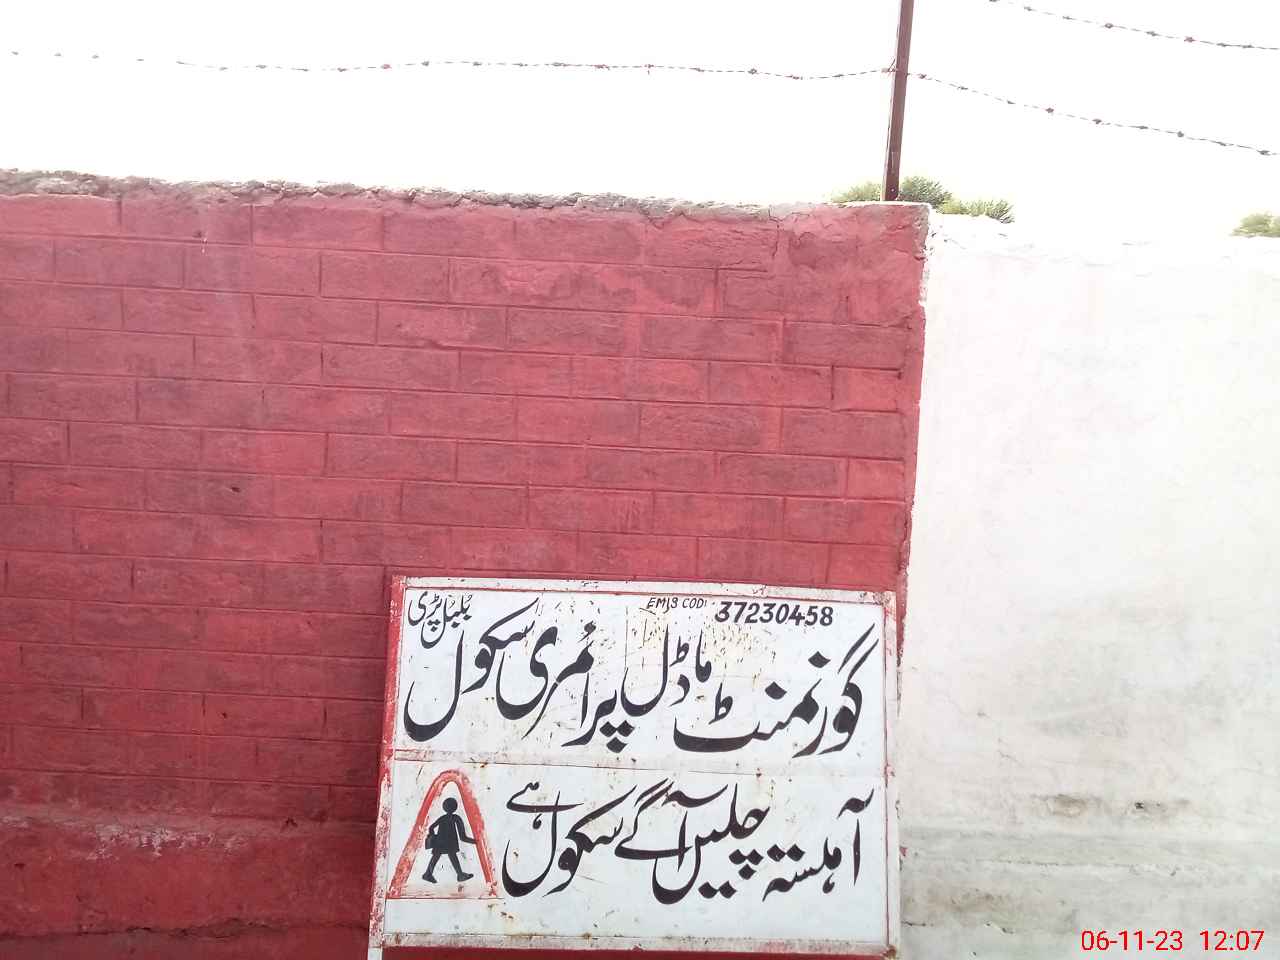 EMIS CODE 37230458
گورنمنٹ ماڈل پرائمری سکول
بُلبُل پڑی
آہستہ چلیں آگے سکول ہے
06-11-23 12:07